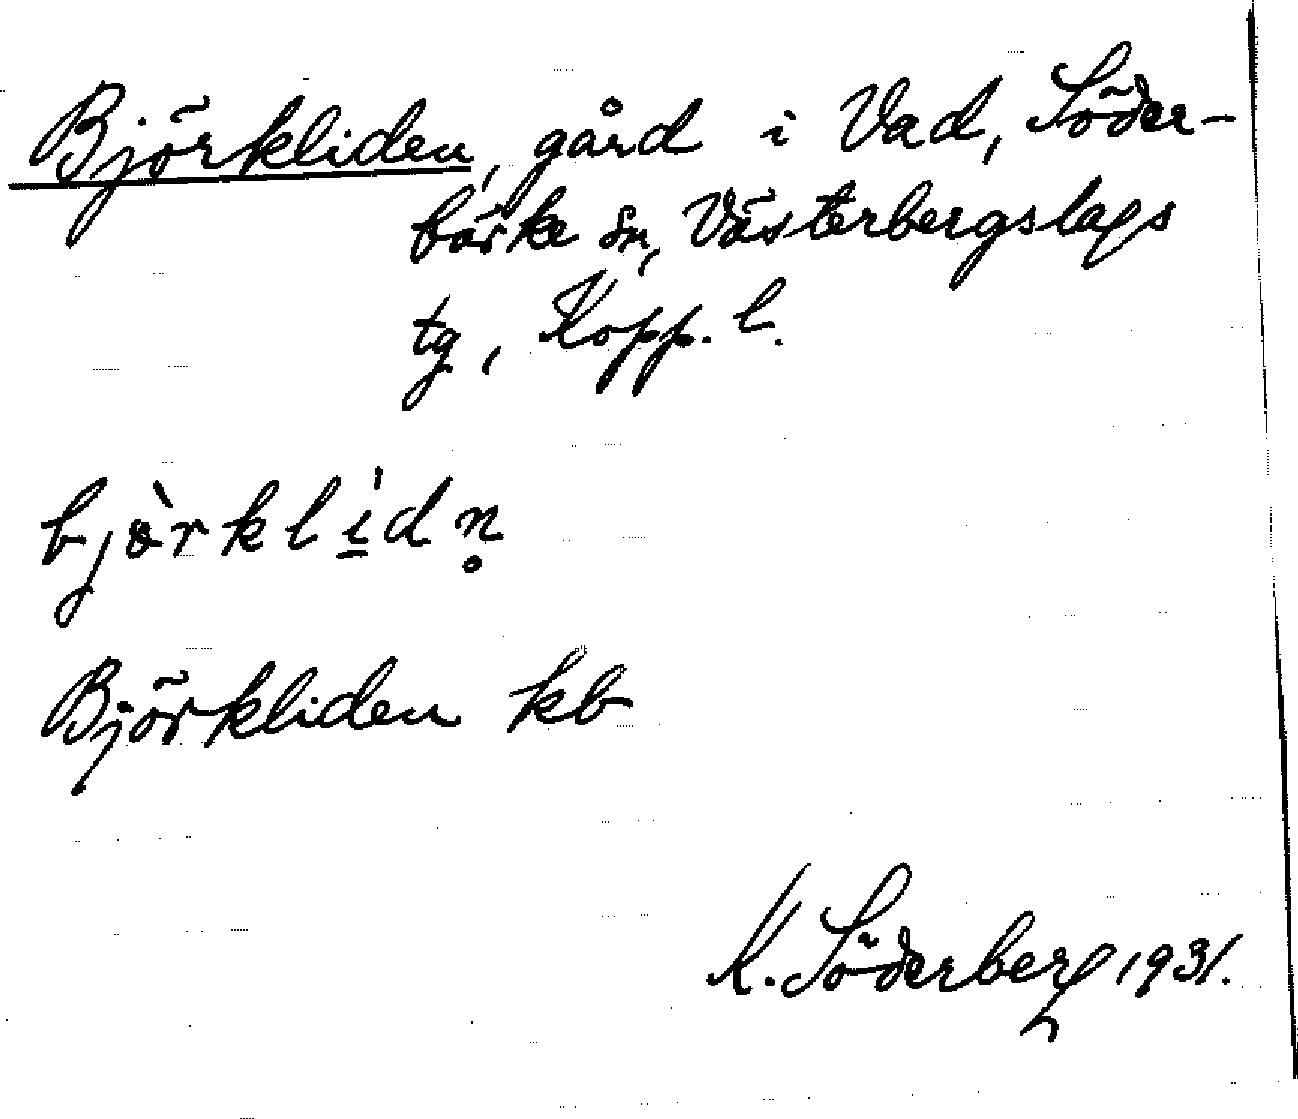 Björkliden, gård i Vad, Söder-
bärke sn, Västerbergslags
tg, Kopp. l.
björklidn
Björkliden kb
K. Söderberg 1931.